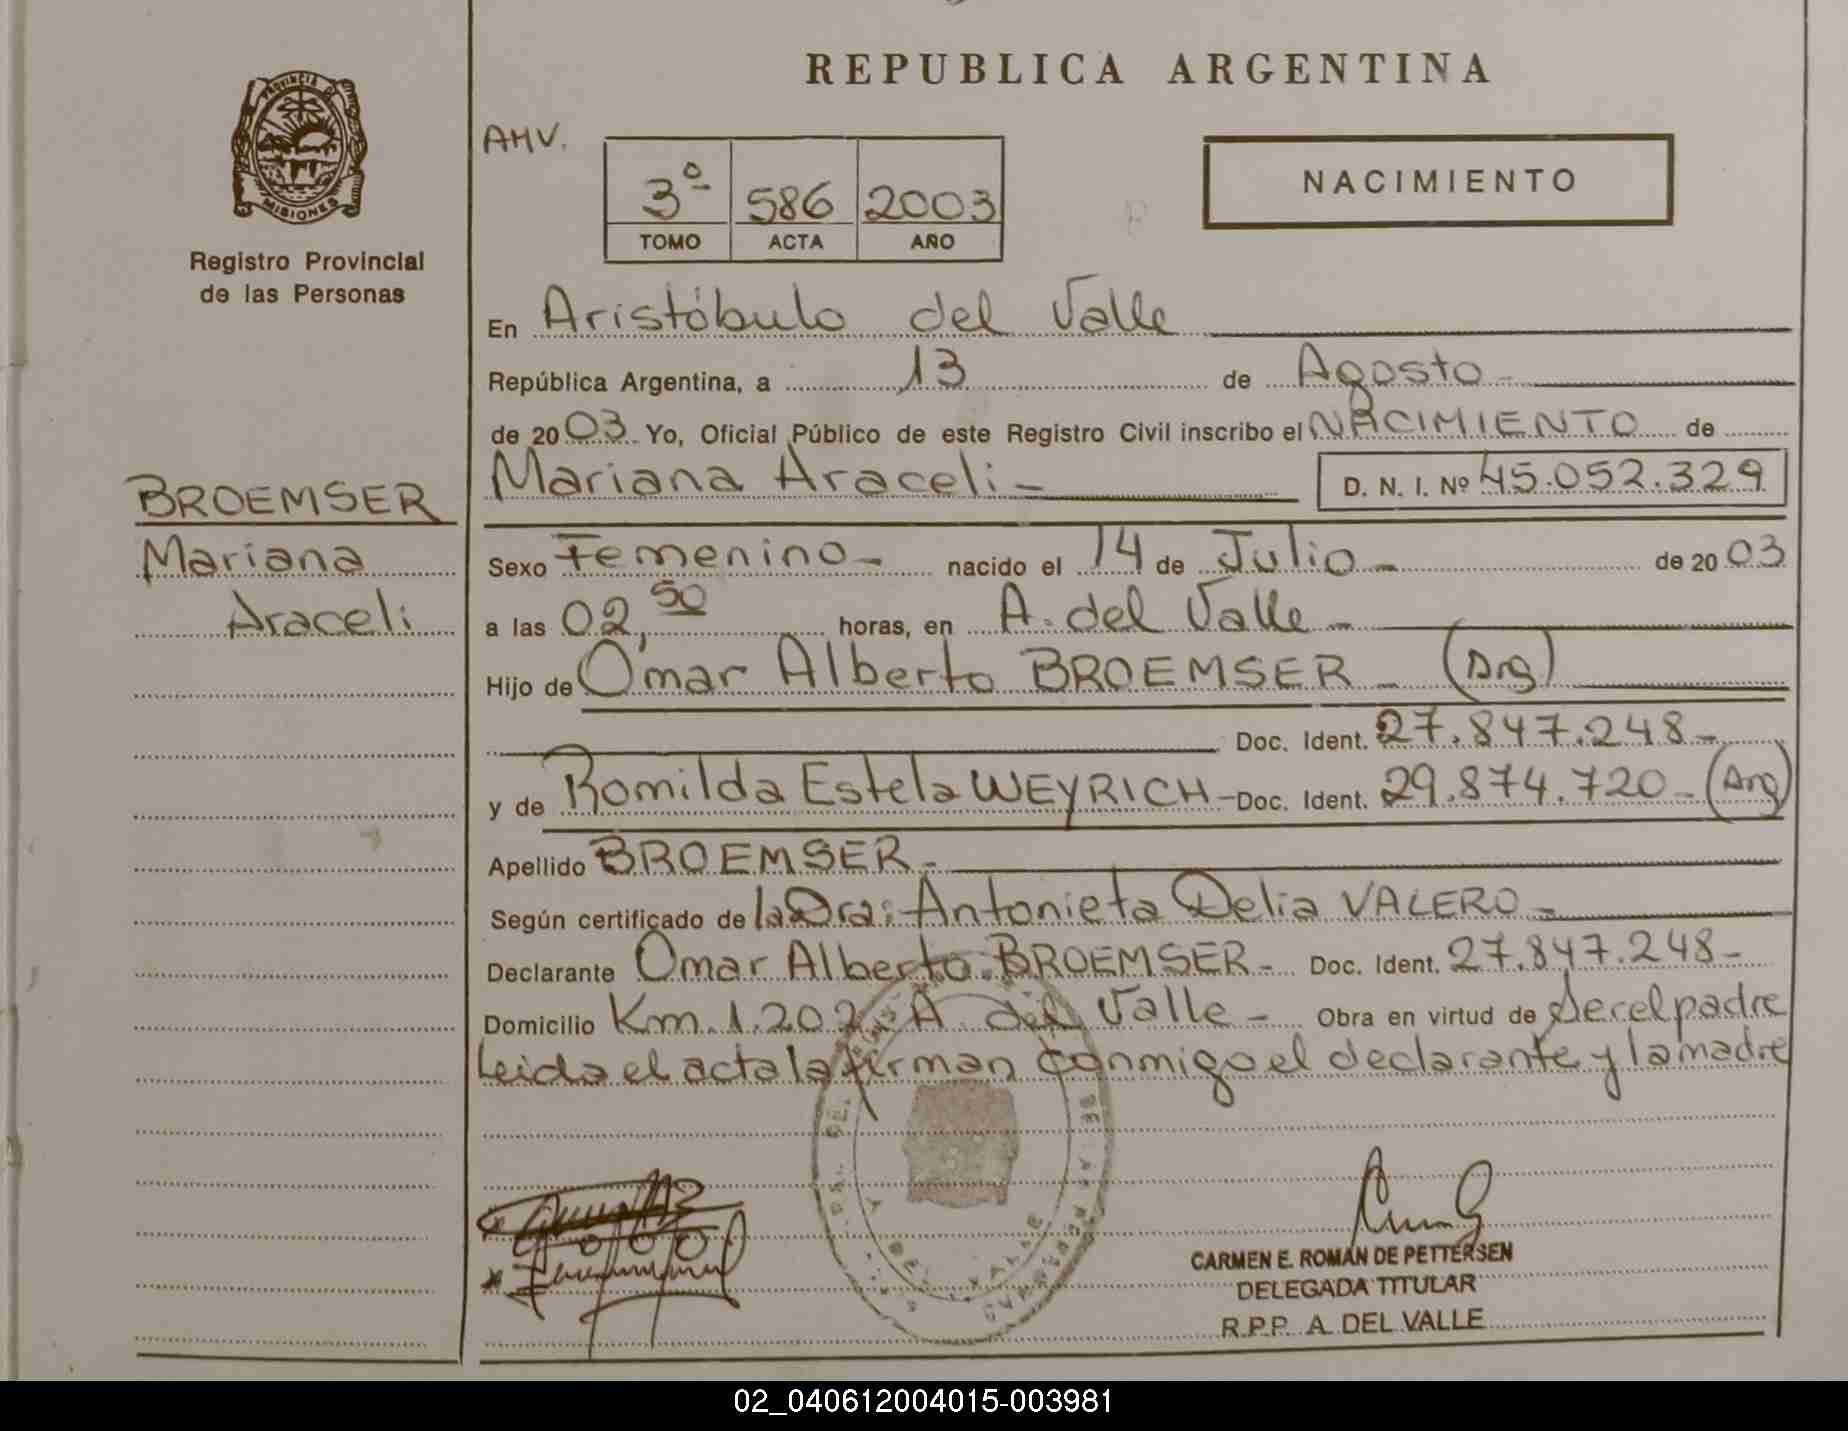 REPUBLICA ARGENTINA
PROVINCIA DE
MISIONES
Registro Provincial
de las Personas
AHV.
3º 586 2003
TOMO ACTA AÑO
NACIMIENTO
En Aristóbulo del Valle
República Argentina, a 13 de Agosto
de 2003 Yo, Oficial Público de este Registro Civil inscribo el NACIMIENTO de
BROEMSER
Mariana
Araceli
Mariana Araceli- D. N. I. Nº 45.052.329
Sexo Femenino- nacido el 14 de Julio- de 2003
a las 02,50 horas, en A. del Valle-
Hijo de Omar Alberto BROEMSER - (Arg)
Doc. Ident. 27.847.248-
y de Romilda Estela WEYRICH- Doc. Ident. 29.874.720- (Arg)
Apellido BROEMSER-
Según certificado de la Dra: Antonieta Delia VALERO-
Declarante Omar Alberto BROEMSER- Doc. Ident. 27.847.248-
Domicilio Km. 1.202 A. del Valle- Obra en virtud de Ser el padre
Leida el acta la firman conmigo el declarante y la madre
CARMEN E. ROMAN DE PETTERSEN
DELEGADA TITULAR
R.P.P. A. DEL VALLE
02_040612004015-003981